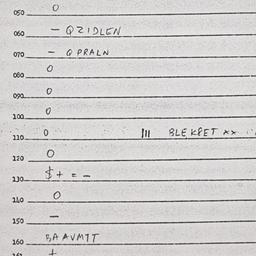 050 0
060 - QZIDLEN
070 - Q PRALN
0
080
0
090
0
100
110 0 III BLEKPET xx
0
120
130 $ + = -
140 0
150 -
160 BAAVMTT
+